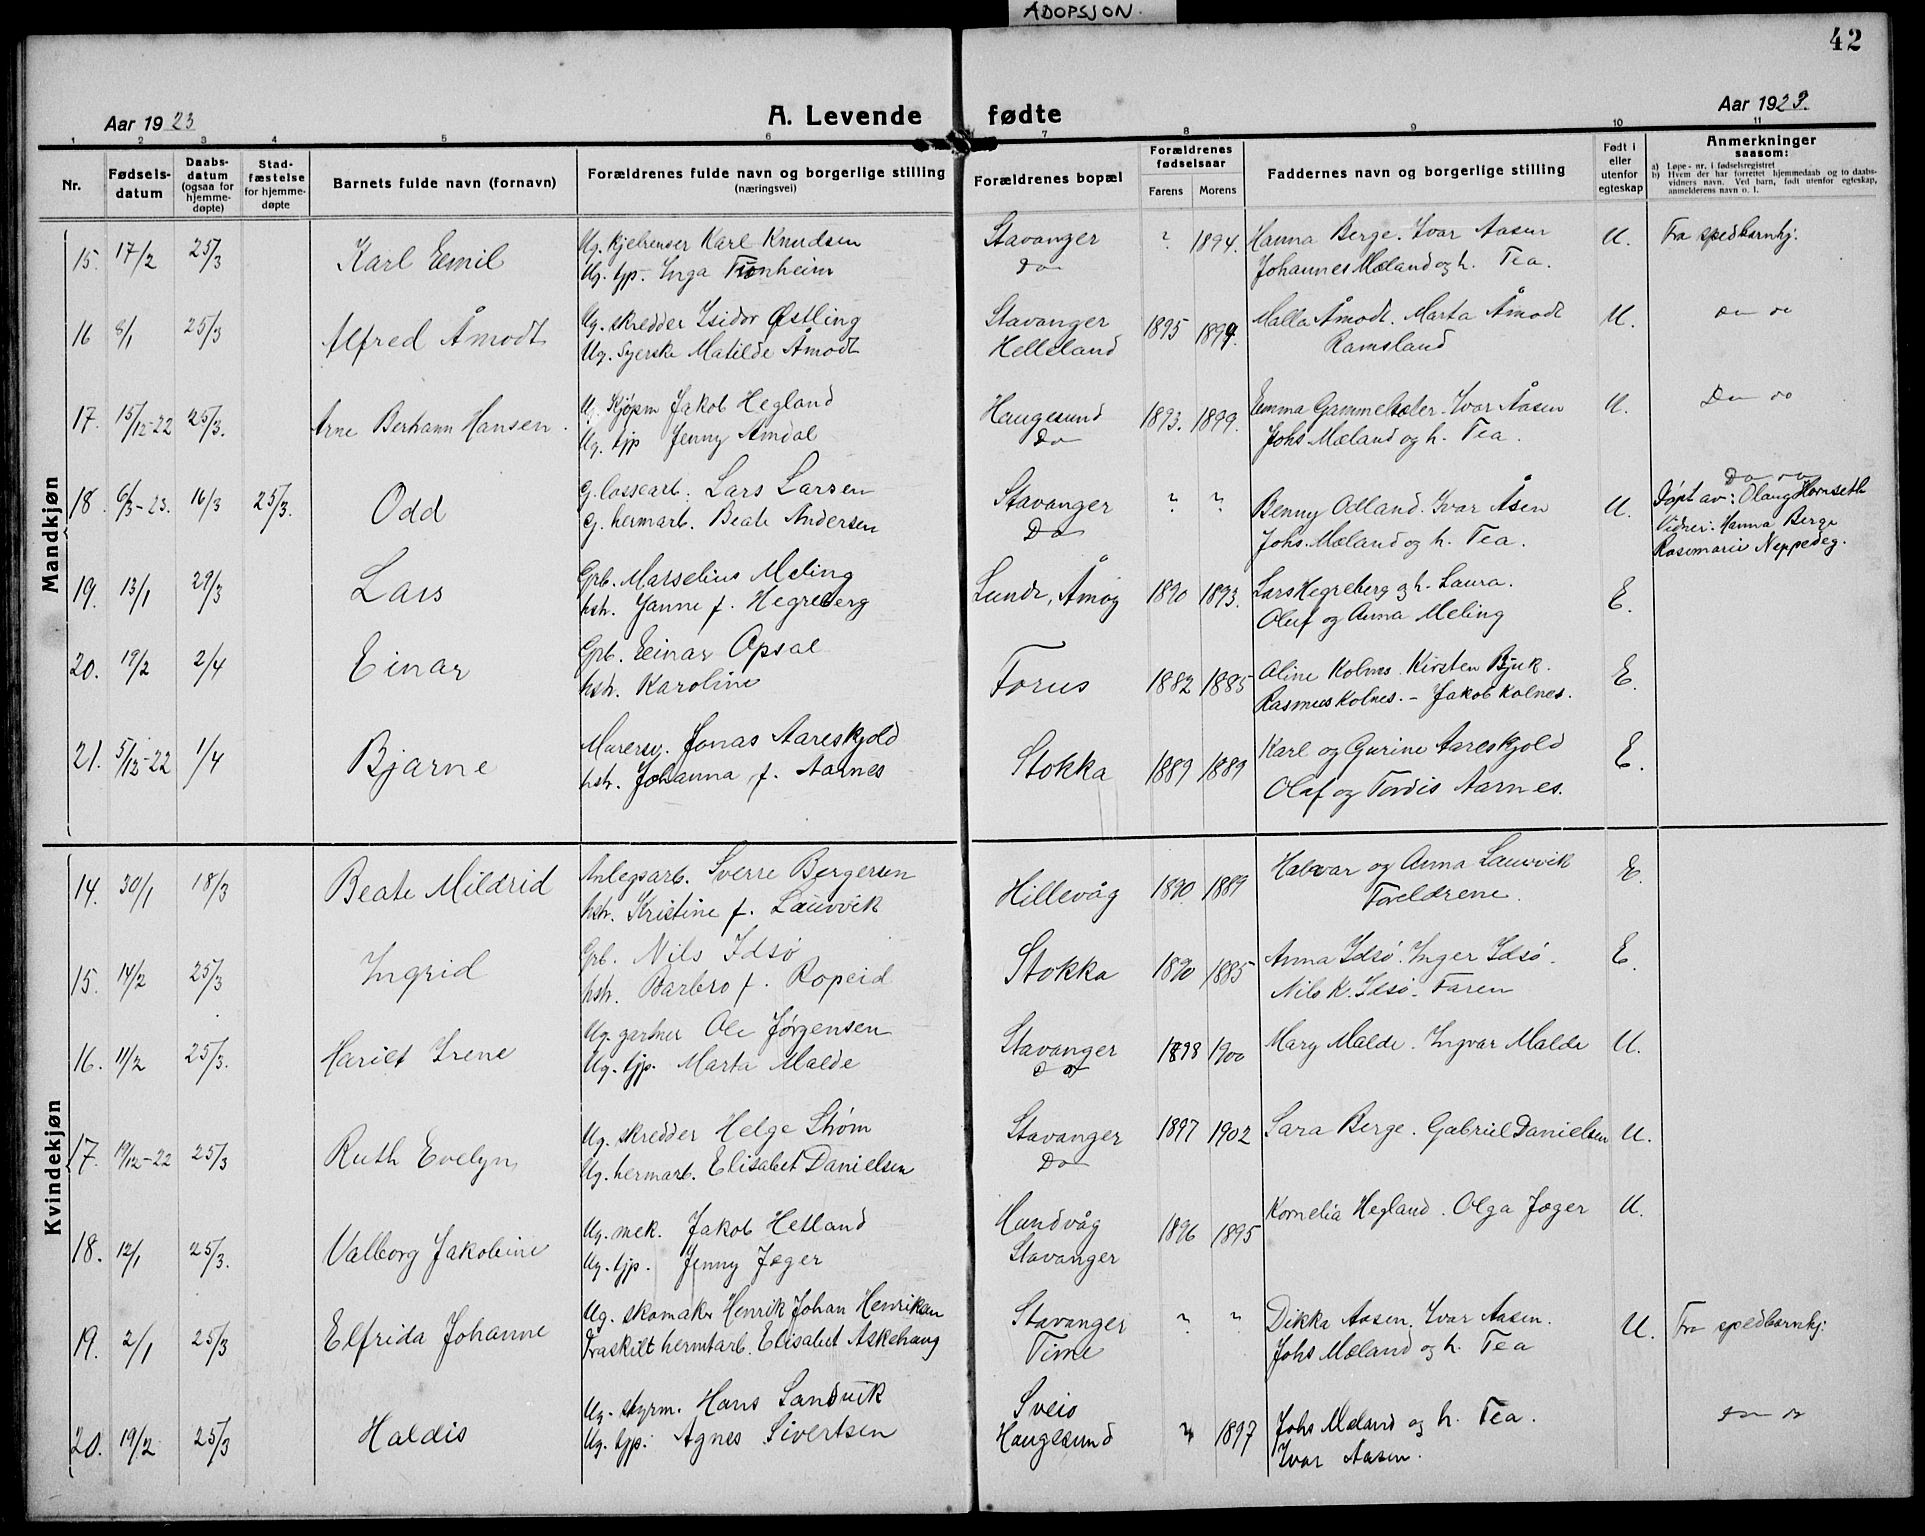 ADOPSJON.
42
Aar 1923
A. Levende fødte
Aar 1923.
1 2 3 4 5 6 7 8 9 10 11
Nr.
Fødsels-datum
Daabs-datum (ogsaa for hjemme-døpte)
Stad-fæstelse for hjemme-døpte
Barnets fulde navn (fornavn)
Forældrenes fulde navn og borgerlige stilling (næringsvei)
Forældrenes bopæl
Forældrenes fødselsaar
Farens Morens
Faddernes navn og borgerlige stilling
Født i eller utenfor egteskap
Anmerkninger saasom:
a) Løpe-nr. i fødselsregistret
b) Hvem der har forrettet hjemmedaab og to daabs-vidners navn. Ved barn, født utenfor egteskap, anmelderens navn o. l.
Mandkjøn
15. 17/2 25/3 Karl Emil Ug. Karl Knudsen Stavanger ? 1894. Hanna Berge. Ivar Aasen U. Fra spedbarnhj.
Ug. tjp. Inga Do Johannes Mæland og h. Tea.
16 8/1 25/3 Alfred Åmodt Ug. skredder Isidor Østling Stavanger 1895 1899. Malla Åmodt. Marta Åmodt U. Do do
Ug. Syerske Matilde Åmodt Helleland Ramsland
17. 15/12-22 25/3. Arne Berhann Hansen. U. Kjøpm Jakob Hegland Haugesund 1893. 1899. Emma Gammelsæter. Ivar Åasen U. Do do
Ug. tjp Jenny Amdal Do Johs. Mæland og h. Tea.
18. 6/3-23. 16/3 25/3. Odd G. lossearb. Lars Larsen Stavanger ? ? Benny Odland. Ivar Åsen U. Do do
G. hermarb. Beate Andersen Do Johs. Mæland og h. Tea. Døpt av: Olaug Hornseth
Vidner: Hanna Berge
Rosemarie Neppedeg.
19. 13/1 29/3 Lars Grb. Marselius Meling Lunde, Åmøy 1890 1893. Lars Hegreberg og h. Laura. E.
hstr. Janne f. Hegreberg Oluf og Anna Meling
20. 19/2 2/4 Einar Grb. Einar Opsal Forus 1882 1885 Aline Kolnes Kirsten E.
hstr. Karoline Rasmus Kolnes. - Jakob Kolnes.
21. 5/12-22 1/4 Bjarne Murersv. Jonas Aareskjold Stokka 1889 1889 Karl og Gurine Aareskjold E.
hstr. Johanna f. Aarnes Olaf og Tordis Aarnes.
Kvindekjøn
14. 30/1 18/3 Beate Mildrid Anlegsarb. Sverre Bergersen Hillevåg 1890 1889 Halvar og Anna Lauvvik E.
hstr. Kristine f. Lauvvik Foreldrene.
15. 14/2 25/3 Ingrid Grb. Nils Idsø Stokka 1890 1885 Anna Idsø. Inger Idsø. E.
hstr. Barbro f. Ropeid Nils K. Idsø. Faren
16. 11/2 25/3. Hariet Irene Ug. gartner Ole Jørgensen Stavanger 1898 1900 Mary Malde. Ingvar Malde U.
Ug. tjp. Marta Malde Do
17. 19/12-22 25/3 Ruth Evelyn Ug. skredder Helge Strøm Stavanger 1897 1902 Sara Berge. Gabriel Danielsen U.
Ug. hermarb. Elisabet Danielsen Do
18. 12/1 25/3. Valborg Jakobine Ug. mek. Jakob Hetland Hundvåg 1896 1895 Kornelia Hegland. Olga Jæger U.
Ug. tjp. Jenny Jæger Stavanger
19. 2/1 25/3 Elfrida Johanne Ug. skomaker Henrik Johan Henriksen Stavanger ? ? Dikka Aasen. Ivar Aasen. U. Fra spedbarnhj.
Fraskilt hermtarb. Elisabet Askehaug Time Johs Mæland og h. Tea
20. 19/2 25/3 Haldis Ug. styrm. Hans Sandvik Sveio ? 1897 Johs Mæland og h. Tea. Do do
Ug. tjp. Agnes Sivertsen Haugesund Ivar Aasen.